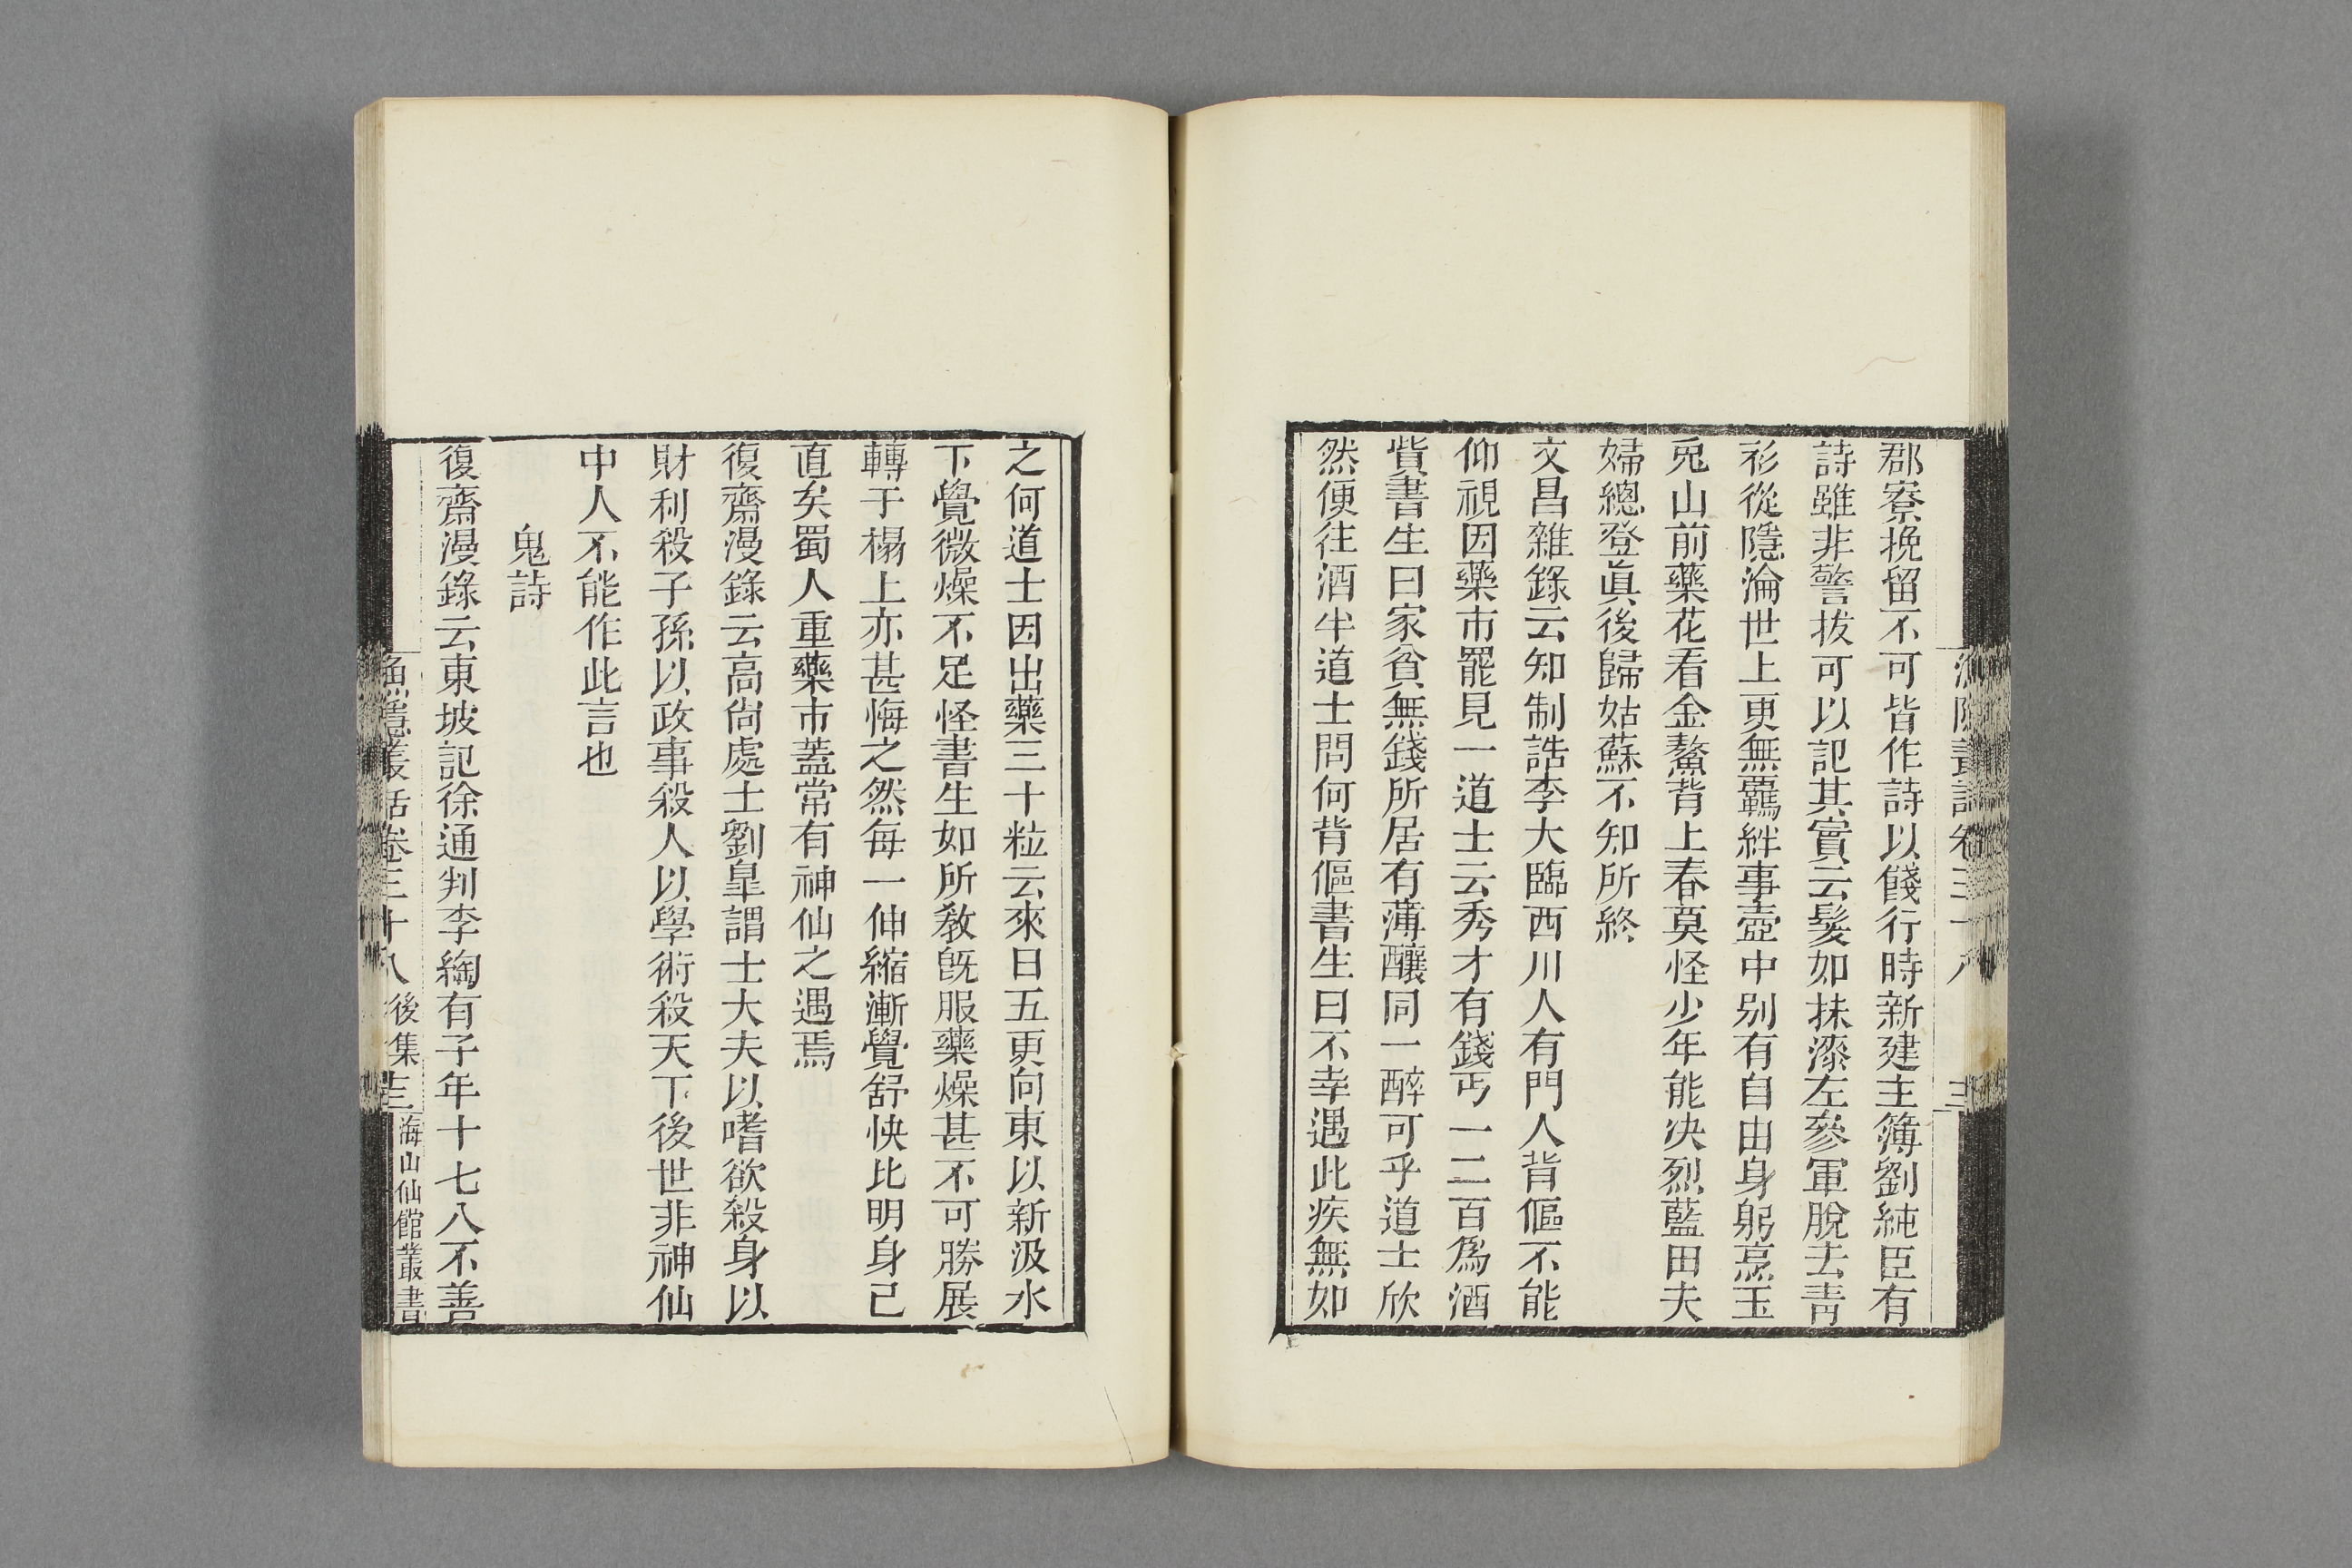 郡寮挽留不可皆作詩以餞行時新建主簿劉純臣有
詩雖非警拔可以記其實云髮如抹漆左參軍脫去青
衫從隱淪世上更無羈絆事壺中別有自由身躬烹玉
兎山前藥花看金鰲背上春莫怪少年能决烈藍田夫
婦總登眞後歸姑蘇不知所終
文昌雜錄云知制誥李大臨西川人有門人背傴不能
仰視因藥市罷見一道士云秀才有錢丐一二百爲酒
貲書生曰家貧無錢所居有薄釀同一醉可乎道士欣
然便往酒半道士問何背傴書生曰不幸遇此疾無如
之何道士因出藥三十粒云來日五更向東以新汲水
下覺微燥不足怪書生如所教旣服藥燥甚不可勝展
轉于榻上亦甚悔之然每一伸縮漸覺舒快比明身已
直矣蜀人重藥市蓋常有神仙之遇焉
復齋漫錄云高尙處士劉皐謂士大夫以嗜欲殺身以
財利殺子孫以政事殺人以學術殺天下後世非神仙
中人不能作此言也
鬼詩
復齋漫錄云東坡記徐通判李綯有子年十七八不善
漁隱叢話卷三十八 後集 海山仙館叢書